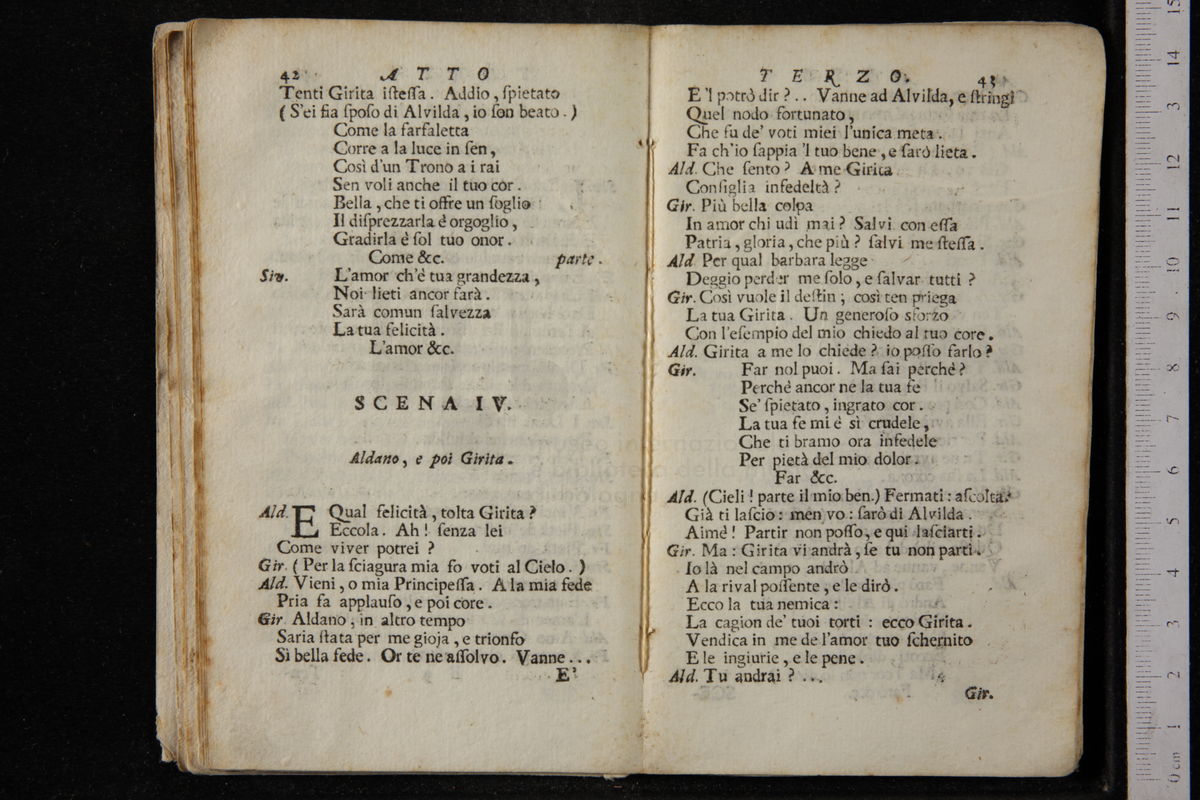 42 ATTO
Tenti Girita iſteſſa. Addio, ſpietato
(S'ei fia ſpoſo di Alvilda, io ſon beato.)
Come la farfaletta
Corre a la luce in ſen,
Così d'un Trono a i rai
Sen voli anche il tuo cor.
Bella, che ti offre un ſoglio
Il diſprezzarla è orgoglio,
Gradirla è ſol tuo onor.
Come &c. parte.
Siv. L'amor ch'è tua grandezza,
Noi lieti ancor farà.
Sarà comun ſalvezza
La tua felicità.
L'amor &c.
SCENA IV.
Aldano, e poi Girita.
Ald. E Qual felicità, tolta Girita?
Eccola. Ah! ſenza lei
Come viver potrei?
Gir. (Per la ſciagura mia fo voti al Cielo.)
Ald. Vieni, o mia Principeſſa. A la mia fede
Pria fa applauſo, e poi core.
Gir Aldano, in altro tempo
Saria ſtata per me gioja, e trionfo
Sì bella fede. Or te ne aſſolvo. Vanne...
E'
TERZO. 43
E 'l potrò dir?.. Vanne ad Alvilda, e ſtringi
Quel nodo fortunato,
Che fu de' voti miei l'unica meta.
Fa ch'io ſappia 'l tuo bene, e ſarò lieta.
Ald. Che ſento? A me Girita
Conſiglia infedeltà?
Gir. Più bella colpa
In amor chi udì mai? Salvi con eſſa
Patria, gloria, che più? ſalvi me ſteſſa.
Ald Per qual barbara legge
Deggio perder me ſolo, e ſalvar tutti?
Gir. Così vuole il deſtin; così ten priega
La tua Girita. Un generoſo sforzo
Con l'eſempio del mio chiedo al tuo core.
Ald. Girita a me lo chiede? io poſſo farlo?
Gir. Far nol puoi. Ma ſai perchè?
Perchè ancor ne la tua fe
Se' ſpietato, ingrato cor.
La tua fe mi è sì crudele,
Che ti bramo ora infedele
Per pietà del mio dolor.
Far &c.
Ald. (Cieli! parte il mio ben.) Fermati: aſcolta.
Già ti laſcio: men vo: ſarò di Alvilda.
Aimè! Partir non poſſo, e qui laſciarti.
Gir. Ma: Girita vi andrà, ſe tu non parti.
Io là nel campo andrò
A la rival poſſente, e le dirò.
Ecco la tua nemica:
La cagion de' tuoi torti: ecco Girita.
Vendica in me de l'amor tuo ſchernito
E le ingiurie, e le pene.
Ald. Tu andrai?...
Gir.